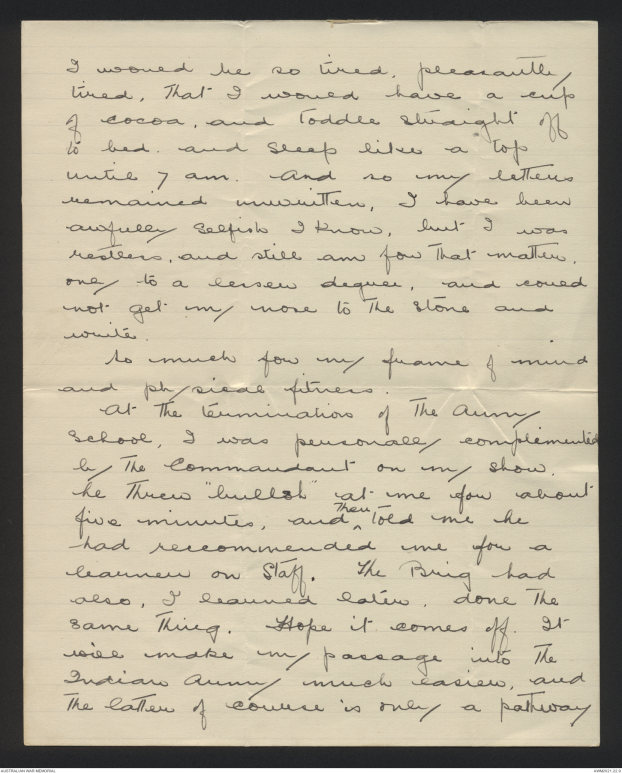 I would be so tired, pleasantly
tired, that I would have a cup
of cocoa, and toddle straight off
to bed. and sleep like a top
until 7 am. And so my letters
remained unwritten, I have been
awfully selfish I know, but I was
restless, and still am for that matter,
only to a lesser degree, and could
not get my nose to the stone and
write.
So much for my frame of mind
and physical fitness.
At the termination of the Army
School, I was personally complimented
by the Commandant on my show.
he threw "bullsh" at me for about
five minutes, and then told me he
had reccommended me for a
learner on Staff. The Brig had
also, I learned later, done the
same thing. Hope it comes off. It
will make my passage into the
Indian Army much easier, and
the latter of course is only a pathway
AUSTRALIAN WAR MEMORIAL